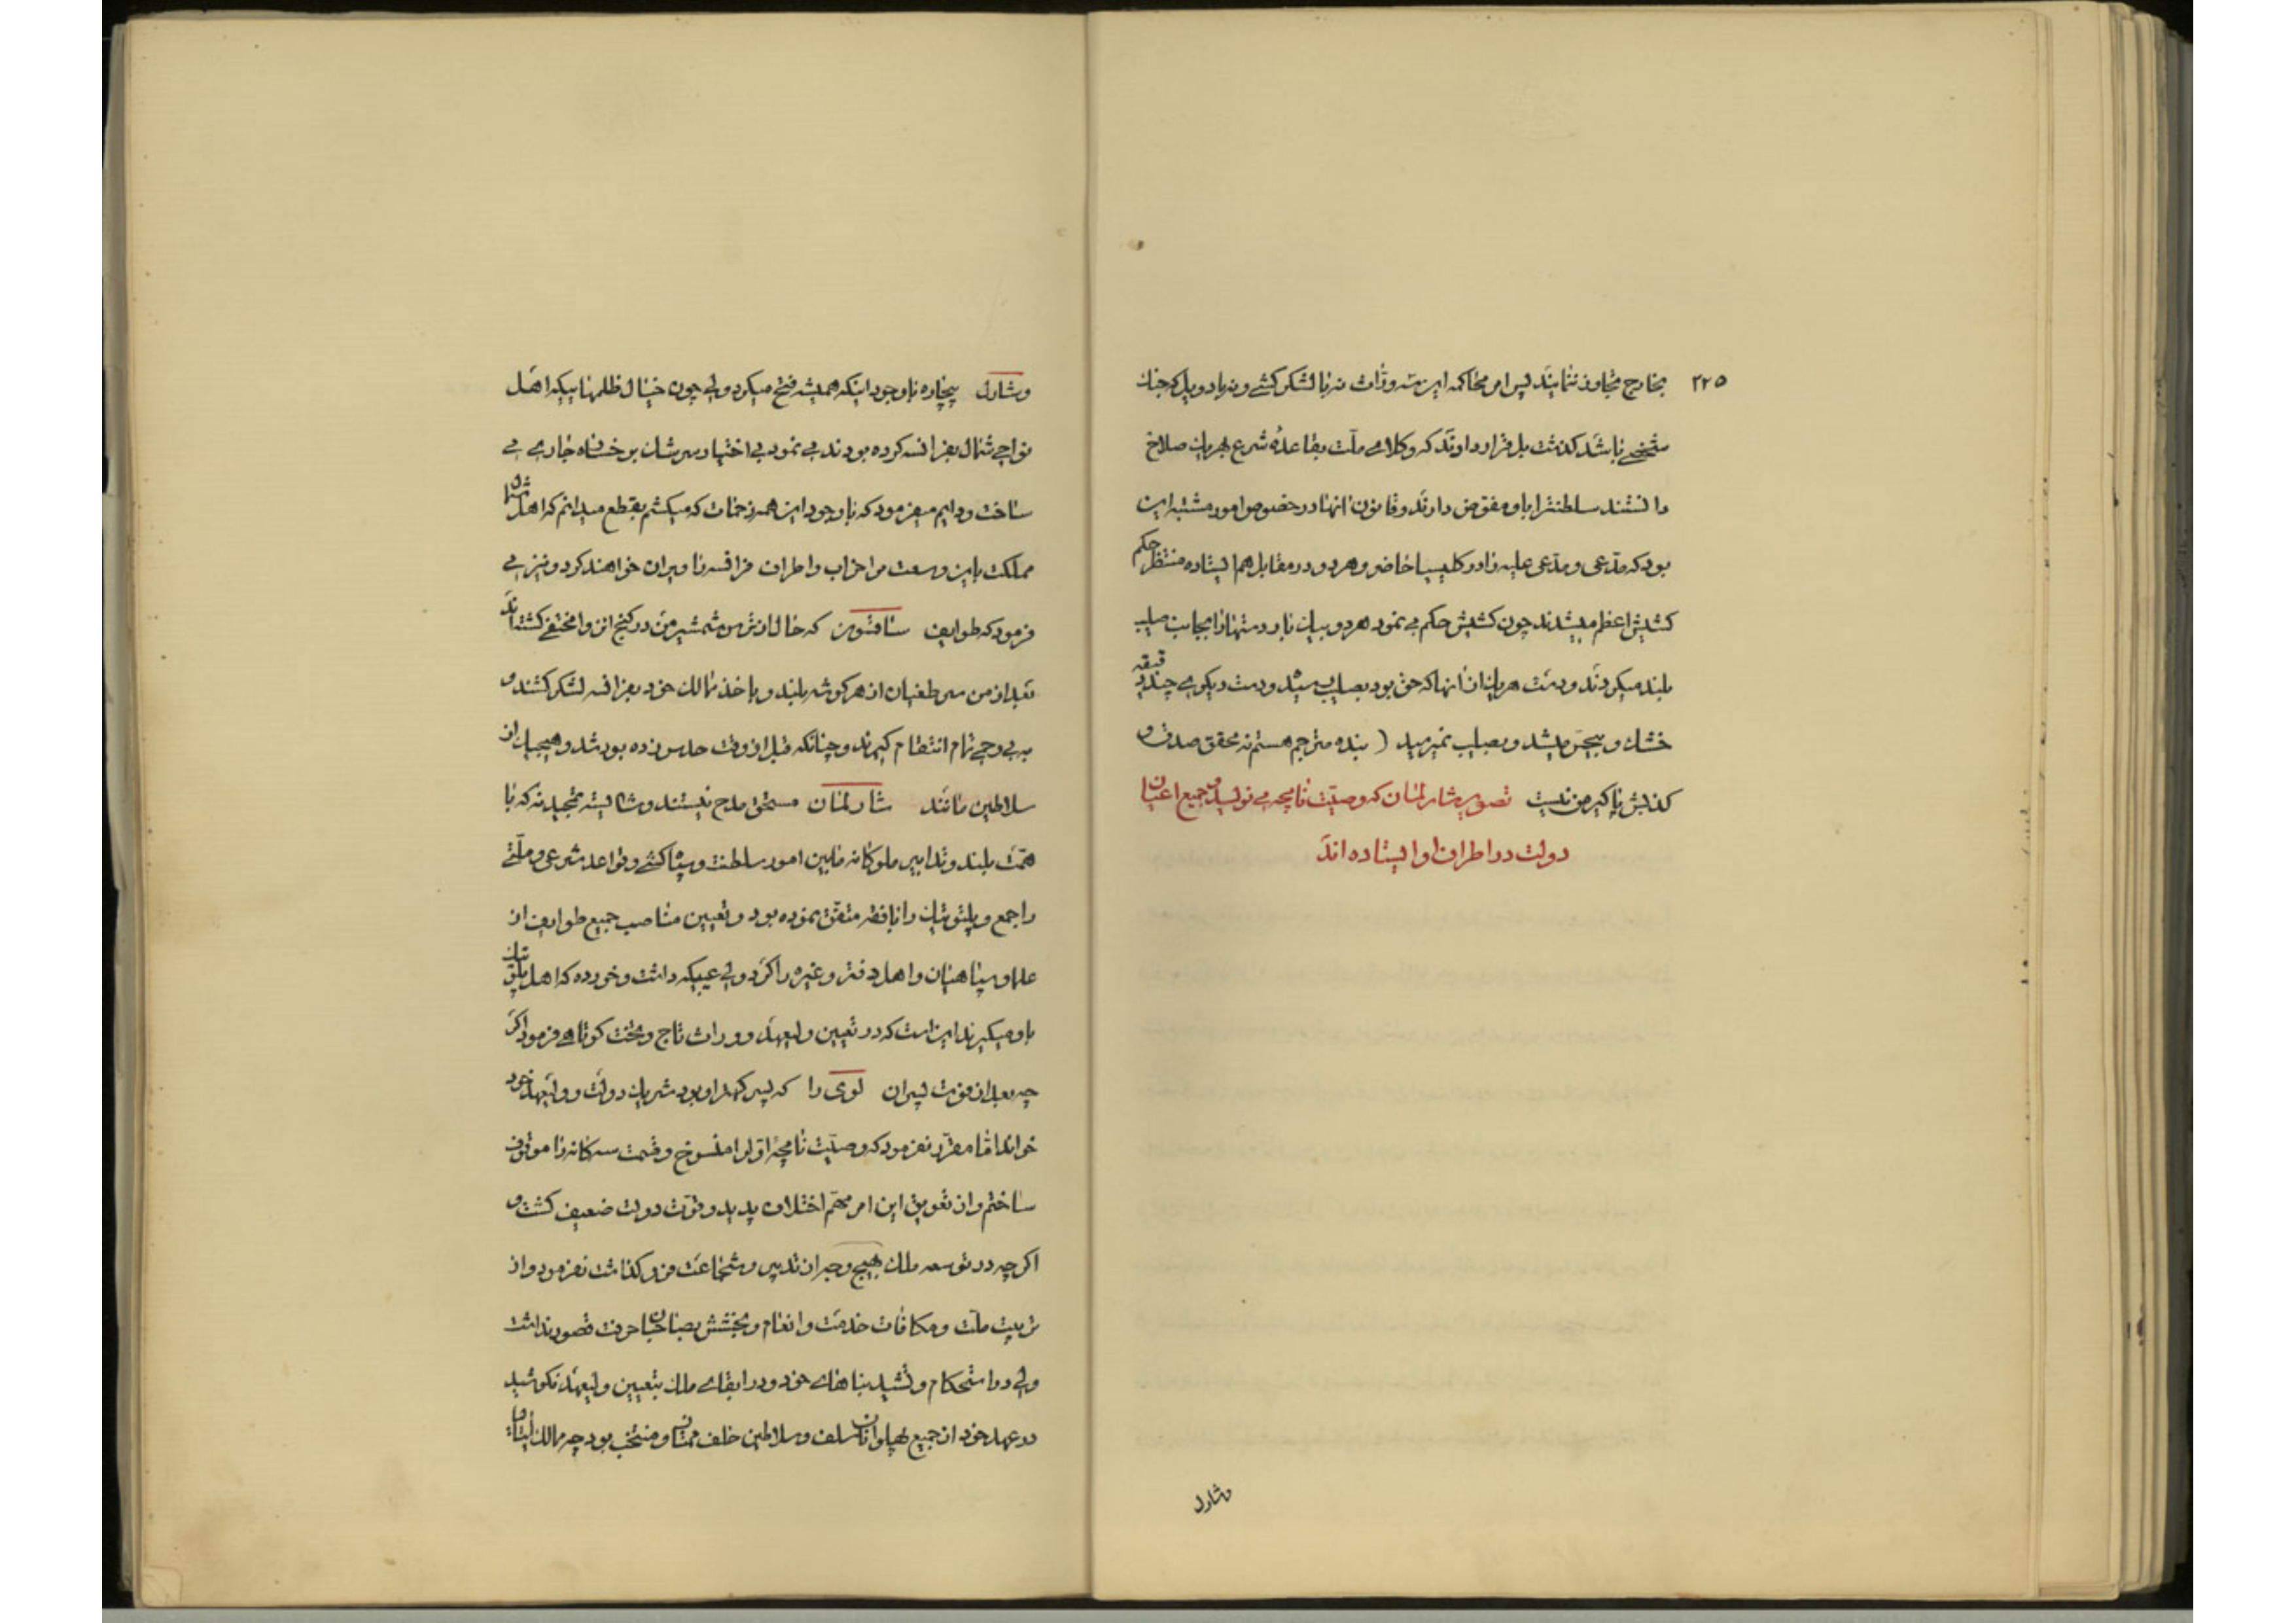 ۲۲۵
بخارج تجاوز ننمایند پس امر محاکمه این سه وراث نه با لشکر کشی و نه با دویل که جنك
شخصی باشد گذشت بل قرار دادند که وکلای ملت بقاعدهٔ شرع بهریك صلاح
دانستند سلطنترا باو مفوض دارند و قانون آنها در خصوص امور مشتبه این
بود که مدعی و مدعی علیه را در کلیسیا حاضر و هر دو در مقابل هم ایستاده منتظر حکم
کشیش اعظم میشدند چون کشیش حکم می نمود هر دو بیك بار دستها را بجانب صلیب
بلند میکردند و دست هریك از آنها که حق بود بصلیب میشد و دست دیگری چند دقیقه
خشك و بیحس میشد و بصلیب نمیرسید ( بنده مترجم هستم نه محقق صدق و
کذبش پاگیر من نیست تصویر شارلمان که وصیت نامچه می نویسد و جمیع اعیان
دولت در اطراف او ایستاده اند
وشارل
وشارل بیچاره با وجود اینکه همیشه فتح میکرد ولی چون خیال ظلمهاییکه اهل
نواحی شمال بفرانسه کرده بودند می نمود بی اختیار سرشك بر خساره جاری می
ساخت و دایم میفرمود که با وجود این همه زحمات که میکشم بقطع میدانم که اهل شمال
مملکت باین وسعت مرا خراب و اطراف فرانسه را ویران خواهند کرد و نیز می
فرمود که طوایف ساقسون که حال از ترس شمشیر من در کنج انزوا مختفی گشته اند
بعد از من سر طغیان از هر گوشه بلند و باخذ ممالك خود بفرانسه لشکر کشند و
به بی رحمی تمام انتقام گیرند و چنانکه قبل از وقت حدس زده بود شد و هیچیك از
سلاطین مانند شارلمان مستحق مدح نیستند و شایسته تمجید نه که با
همت بلند و تدابیر ملوکانه مابین امور سلطنت و سپاکشی و قواعد شرعی و ملتی
را جمع و پلتوتیك را با فقه متفق نموده بود و تعیین مناصب جمیع طوایف از
علما و سپاهیان و اهل دفتر و غیره را کرد ولی عیبیکه داشت و خورده که اهل پلتیك
باو میگیرند این است که در تعیین ولیعهد و وراث تاج و تخت کوتاهی فرمود اگر
چه بعد از فوت پسران لوی را که پسر کهتر او بود شریك دولت و ولیعهد خود
خواند اما مقرر نفرمود که وصیت نامچه اول را منسوخ و قسمت سه گانه را موقوف
ساختم و از تعویق این امر مهم اختلاف پدید و قوت دولت ضعیف گشت و
اگر چه در توسعه ملك بهیچ وجه از تدبیر و شجاعت فرو گذاشت نفرمود و از
تربیت ملت و مکافات خدمت و انعام و بخشش بصاحبان حرفت قصور نداشت
ولی در استحکام و تشیید بناهای خود و در ابقای ملك بتعیین ولیعهد نکوشید
در عهد خود از جمیع پهلوانان سلف و سلاطین خلف ممتاز و منتخب بود چه ممالك